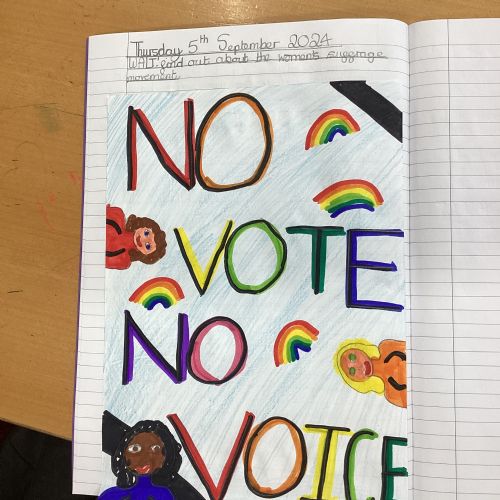 Thursday 5th September 2024
WALT: find out about the women's suffrage
movement.
NO
VOTE
NO
VOICE